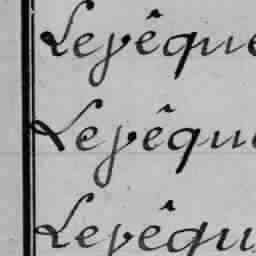 Lepêque
Lepêque
Lepêqu